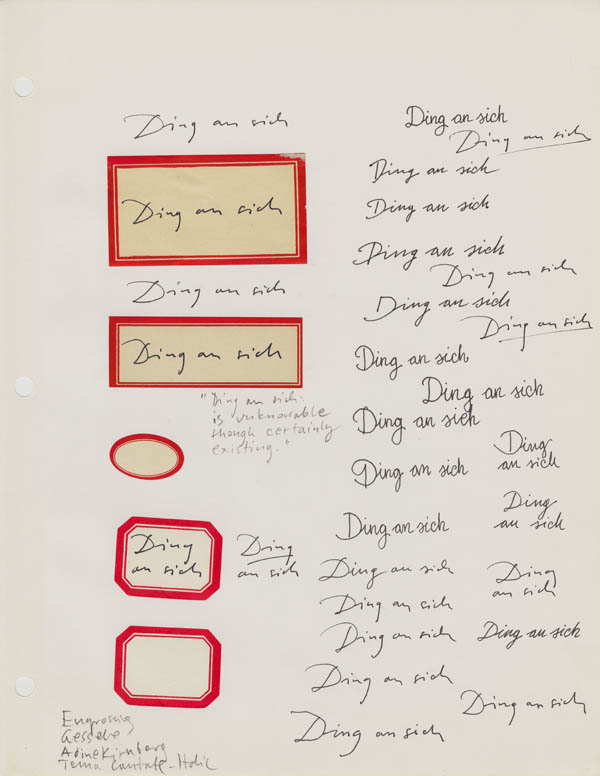 Ding an sich
Ding an sich
Ding an sich
Ding an sich
"Ding an sich:
is unknowable
though certainly
existing."
Ding
an sich
Ding
an sich
Ding an sich
Ding an sich
Ding an sich
Ding an sich
Ding an sich
Ding an sich
Ding an sich
Ding an sich
Ding an sich
Ding an sich
Ding an sich
Ding
an sich
Ding an sich
Ding
an sich
Ding an sich
Ding an sich
Ding
an sich
Ding an sich
Ding an sich
Ding an sich
Ding an sich
Ding an sich
Ding an sich
Engrossing
Adine Kirnberg
Tema Cantate